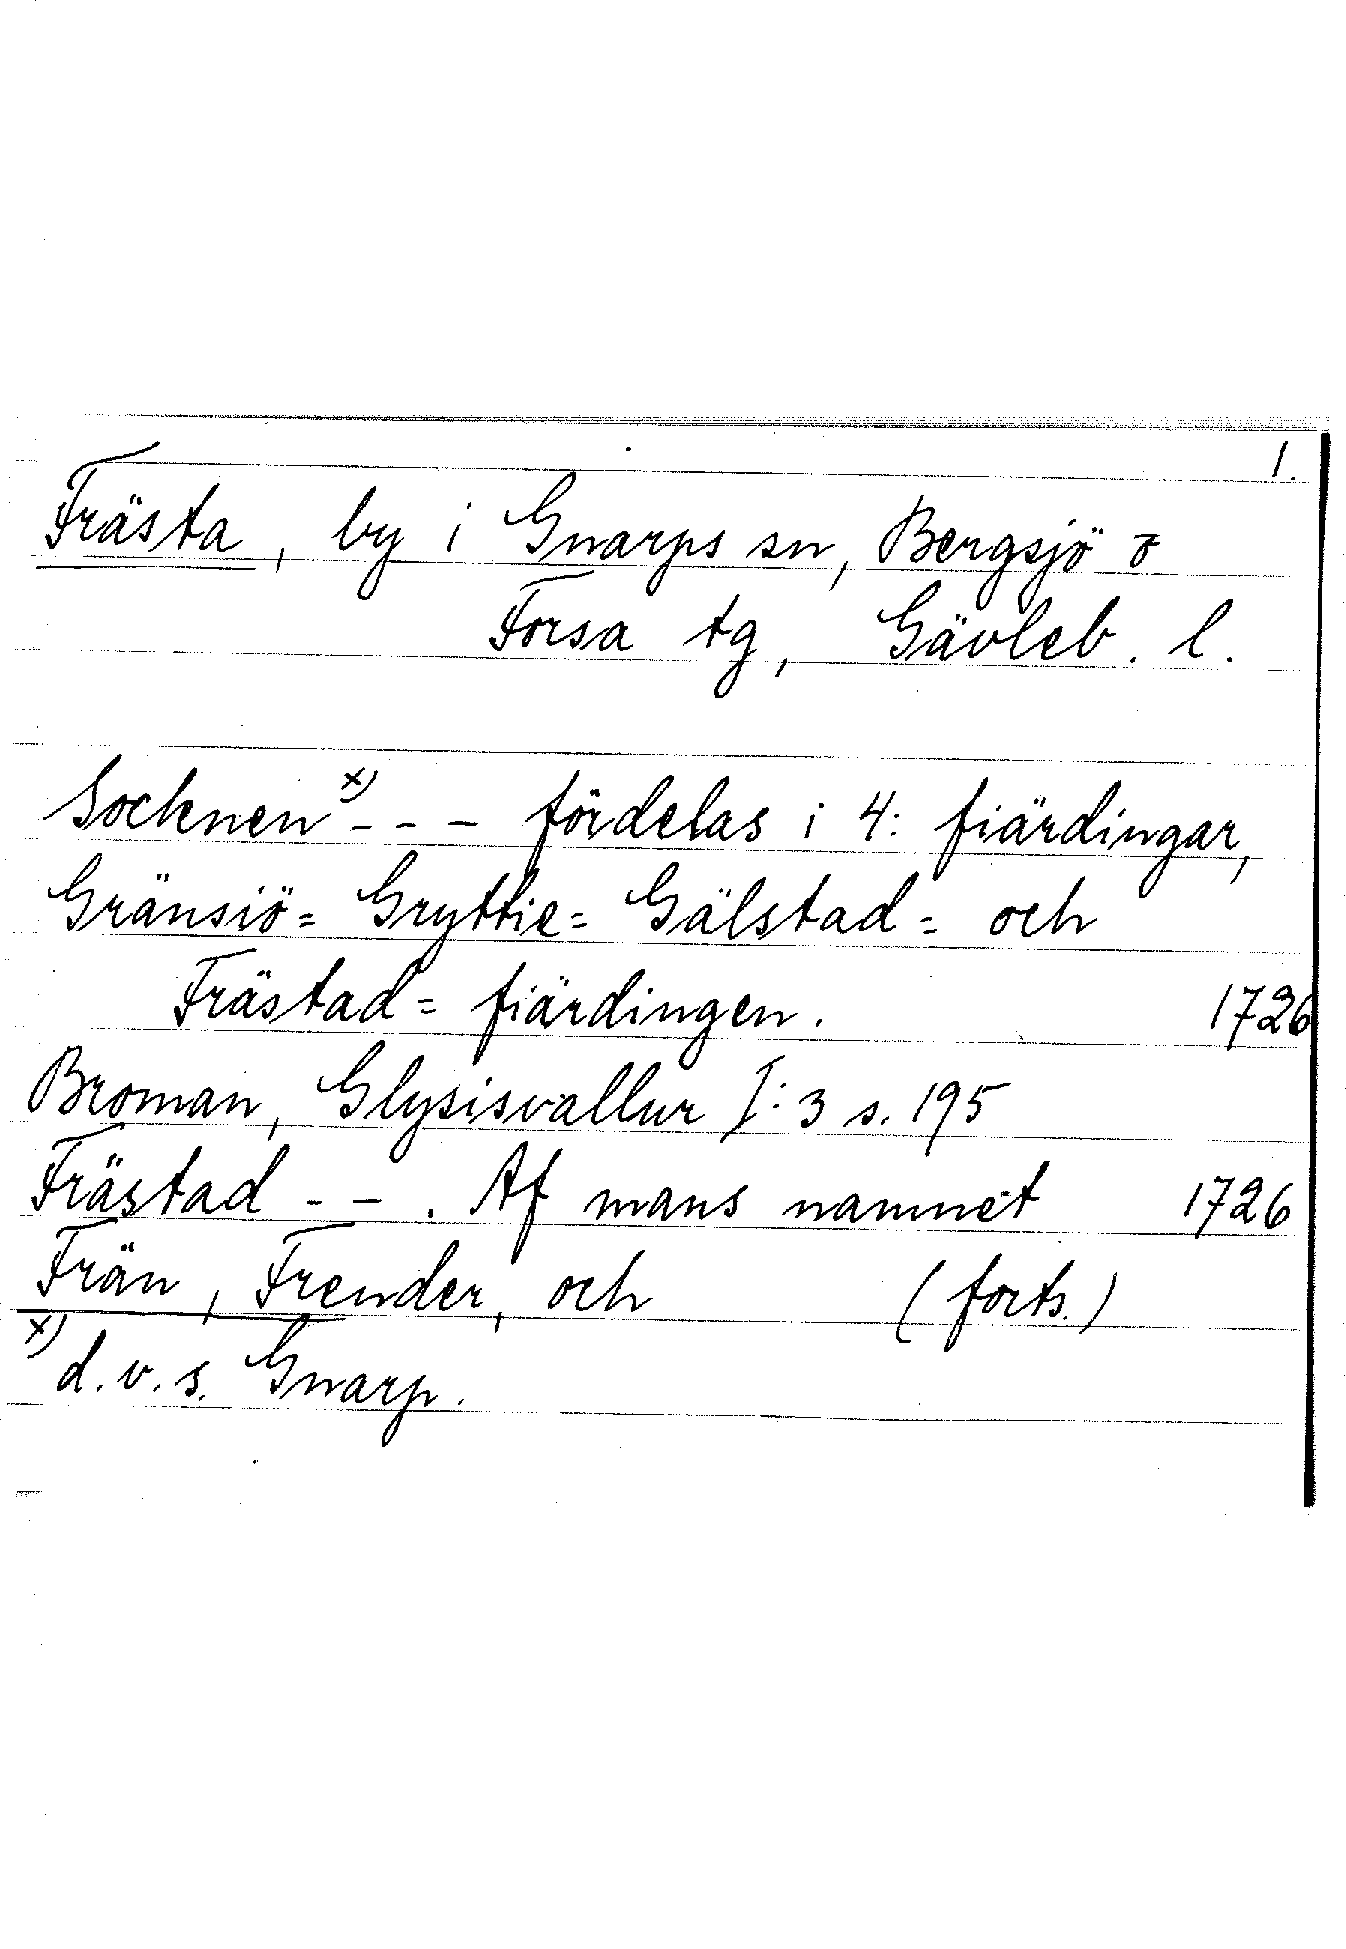 1.
Frästa, by i Gnarps sn, Bergsjö o
Forsa tg, Gävleb. l.
Socknen x) - - - fördelas i 4: fiärdingar,
Gränsiö= Gryttie= Gälstad= och
Frästad= fiärdingen. 1726
Broman, Glysisvallur I:3 s. 195
Frästad - - . Af mans namnet 1726
Frän, Frender, och (forts.)
x) d.v.s. Gnarp.